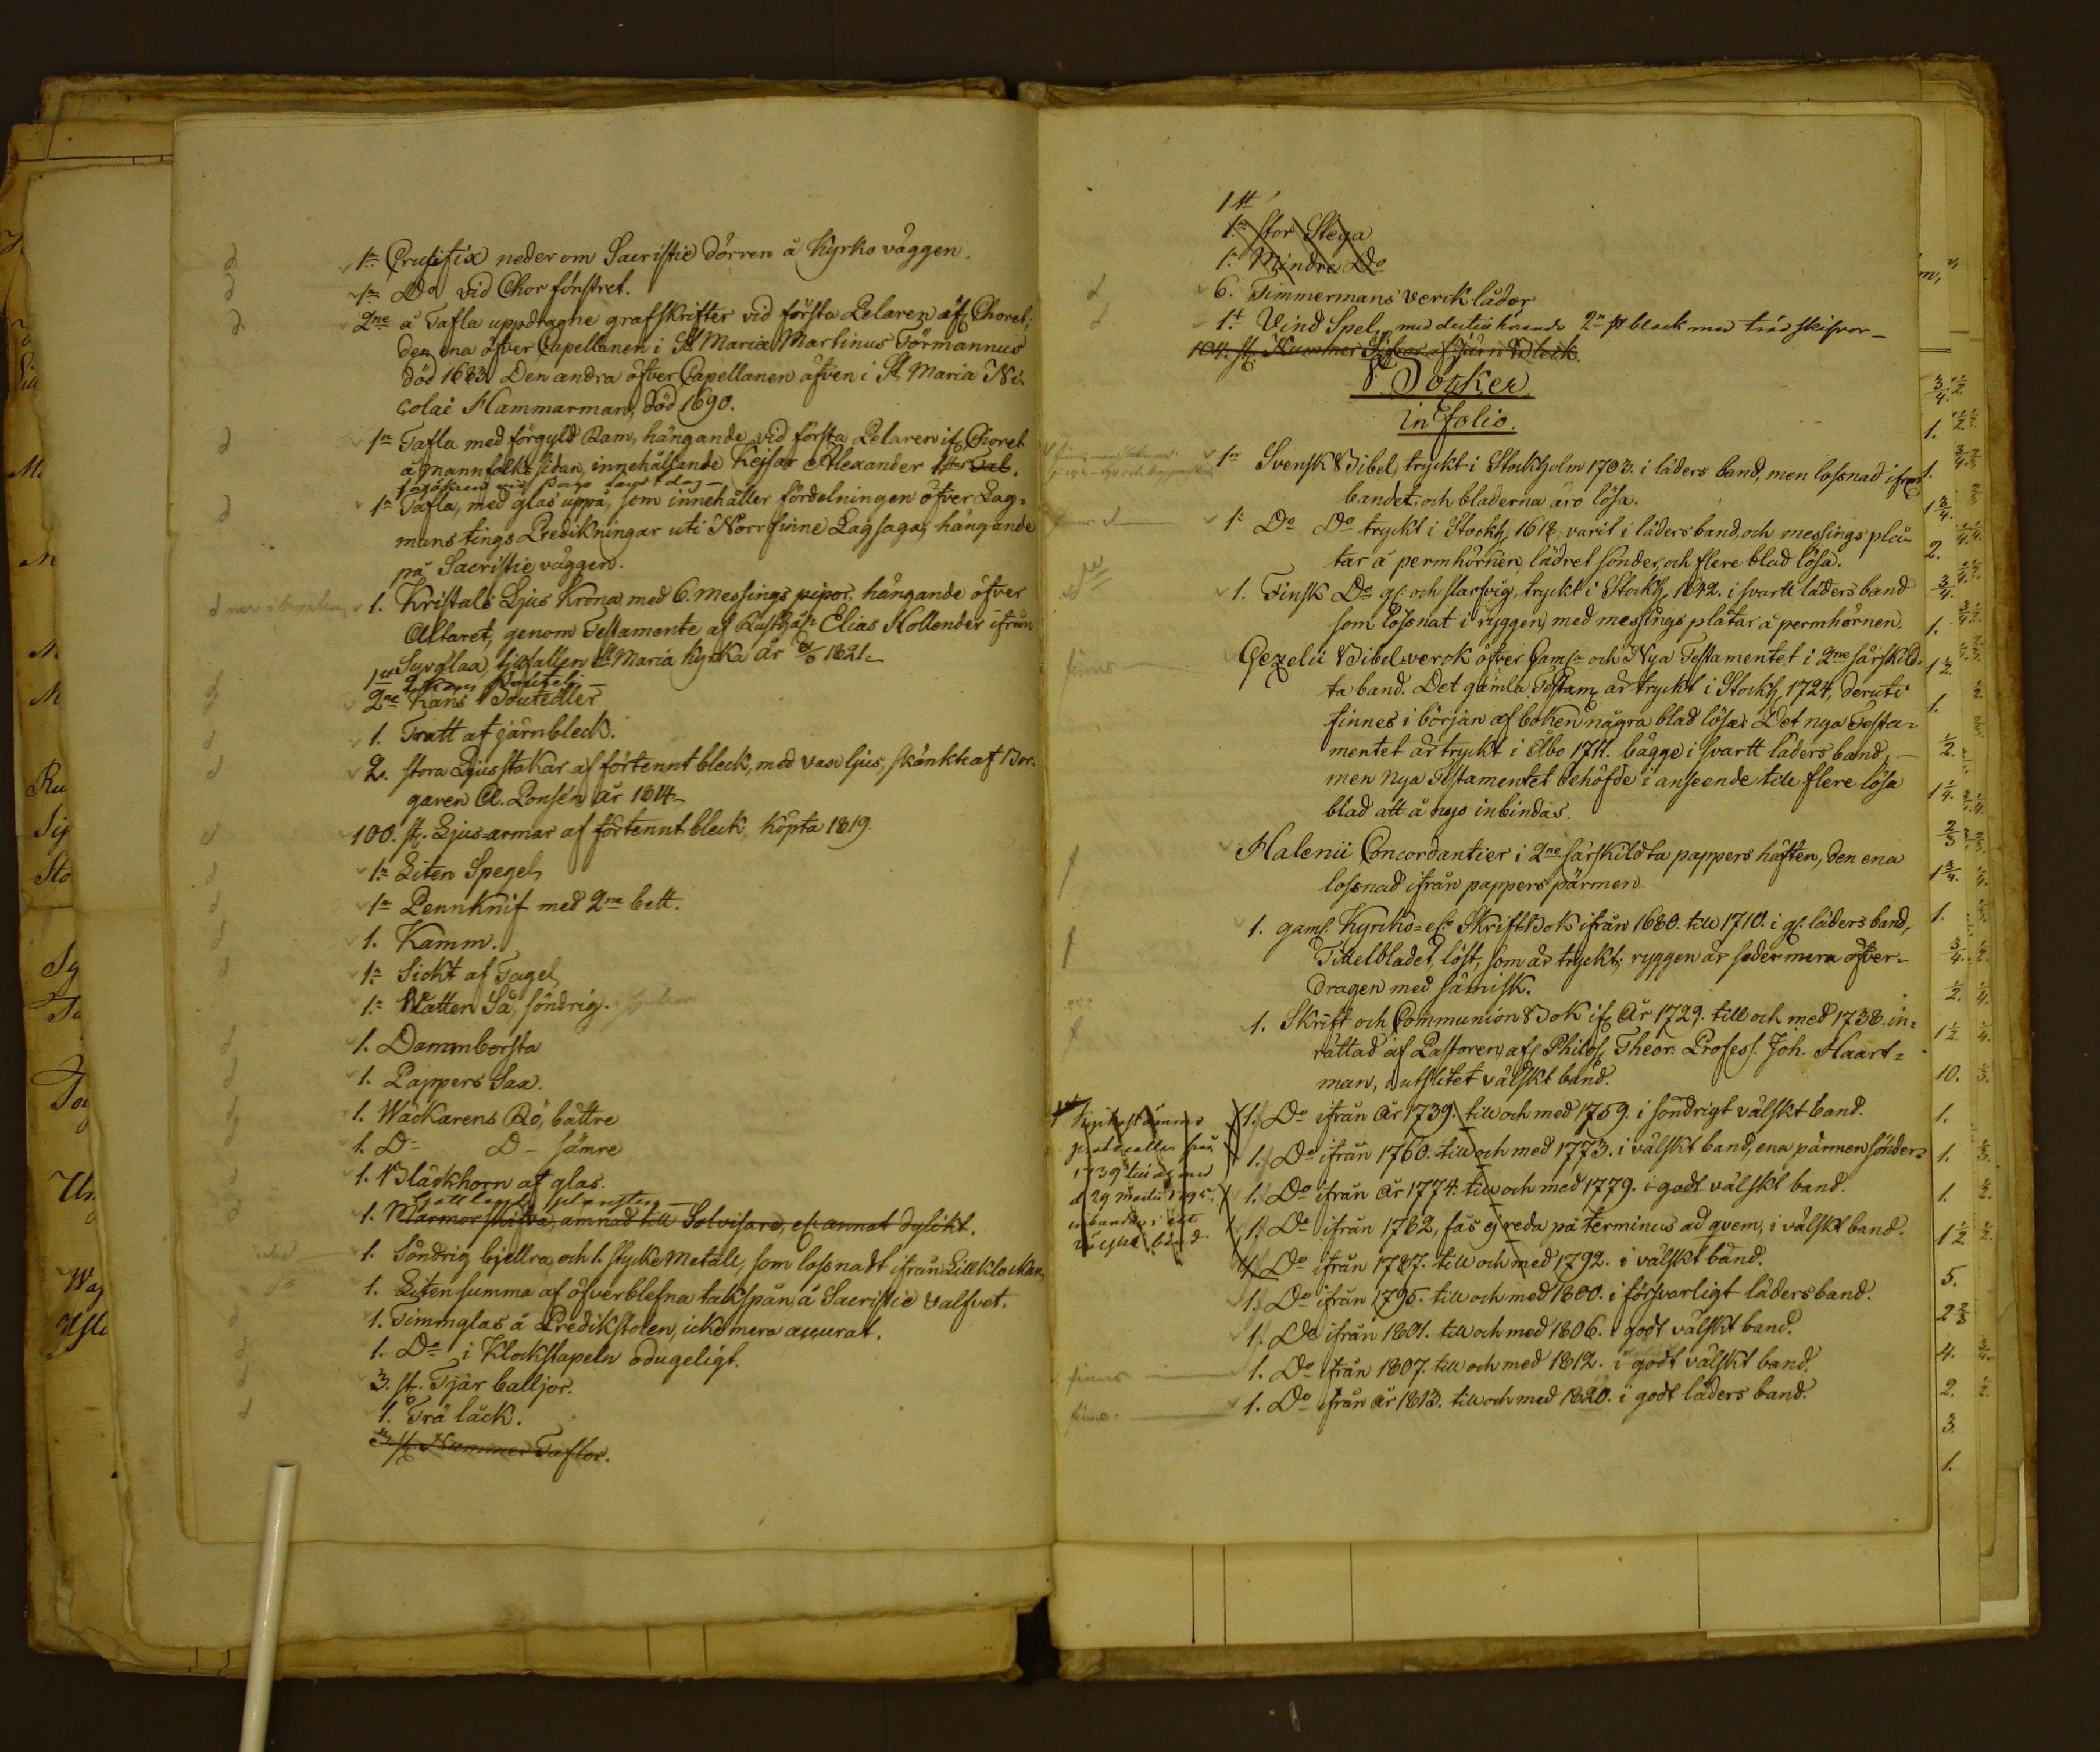 1n Crucifix neder om Sacristie dörren å Kyrko väggen.
1n Do vid Chor fönstret.
2ne å Tafla uppdragne grafskrifter vid första Pelaren af Choret;
den ena öfver Capellanen i St Mariæ Martinus Törmannus
död 1683. Den andra öfver Capellanen äfven i St Maria Ni-
colai Hammarman, död 1690.
1n Tafla med förgyld Ram, hängande vid första Pelaren if. Choret
å mannfolks sidan, innehållande Kejsar Alexander 1stes Tal.
1n Tafla, med glas uppå, som innehåller fördelningen öfver Lag-
mans tings Predikningar uti Norrfinne Lagsaga, hängande
på Sacristie väggen.
1. Kristals Ljus Krona med 6. messings pipor, hängande öfver
Altaret, genom Testamente af Rusth: Elias Hollender ifrån
tillfallen St Maria Kyrka år 1821.
2ne Kans Bouteiller
1. Tratt af järnbleck.
2. stora Ljusstakar af förtennt bleck, med vax ljus, skänkte af Bor-
garen A. Ponsén år 1814.
100. st. Ljus-armar af förtennt bleck, köpta 1819.
1n Liten Spegel
1n Pennknif med 2ne bett.
1. Kamm.
1n Sickt af Tagel
1n Watten Så, söndrig.
1. Dammborsta
1. Pappers Sax.
1. Wäckarens Rö, bättre
1. D- D- sämre
1. Bläckhorn af glas.
1. Marmorskifva, ämnad till Solvisare, el. annat dylikt.
1. Söndrig bjellra, och 1. stycke Metall, som lossnadt ifrån Lillklockan
1. Liten summa af öfverblefna takspån, å Sacristie valfvet.
1. Timmglas å Predikstolen, icke mera accurat.
1. Do i Klockstapeln odugeligt.
3. st. Tjär balljor.
1. Trä låck.
3 st. Nummer Taflor.
1 tt
1n stor Stega
1n Mindre Do
6. Timmermans verck läder
1t Vind Spel, med dertill hörande 2n st block med träd skifvor
104. st. Nummer Sifror af Järn Bleck.
Böcker
in folio.
1n Svensk Bibel, tryckt i Stockholm 1703. i läders band, men lossnad ifrån
bandet, och bladerna äro lösa.
1n Do Do tryckt i Stockh. 1618. varit i läders band, och messings plå-
tar å permhörnen, lädret sönder, och flere blad lösa.
1. Finsk Do gl. och slarfvig, tryckt i Stockh. 1642. i svartt läders band
som lossnat i ryggen, med messings plåtar å permhörnen.
Gezelii Bibelverck öfver Gaml. och Nya Testamentet i 2ne särskild-
ta band. Det gamla Testam. är tryckt i Stockh. 1724, deruti
finnes i början af boken några blad lösa: Det nya Testa-
mentet är tryckt i Åbo 1711. bägge i svartt läders band,
men nya Testamentet behöfde i anseende till flere lösa
blad att å nyo inbindas.
Halenii Concordantier i 2ne särskildta pappers häften, den ena
lossnad ifrån pappers pärmen
1. gaml. Kyrko- el. Skrift Bok ifrån 1680. till 1710. i gl. läders band,
Tittelbladet löst, som är tryckt; ryggen är sedermera öfver-
dragen med sämisk.
1. Skrift och Communion Bok if. År 1729. till och med 1738. in-
rättad af Pastoren, afl. Philos. Theor. Profess. Joh. Haart-
man, i utslitet välskt band.
1. Do ifrån År 1739. till och med 1759. i söndrigt välskt band.
1. Do ifrån 1760. till och med 1773. i välskt band, ena pärmen sönder
1. Do ifrån År 1774. till och med 1779. i godt välskt band.
1. Do ifrån 1782, fås ej reda på terminus ad qvem, i välskt band.
1. Do ifrån 1787. till och med 1792. i välskt band.
1. Do ifrån 1795. till och med 1800. i försvarligt läders band.
1. Do ifrån 1801. till och med 1806. i godt välskt band.
1. Do ifrån 1807. till och med 1812. i godt välskt band.
1. Do ifrån År 1813. till och med 1820. i godt läders band.
1 Kyrkostämmo
protocoller från
1739 till och med
d 29 Martii 1795,
inbundne i ett
välskt band
finnes
finnes